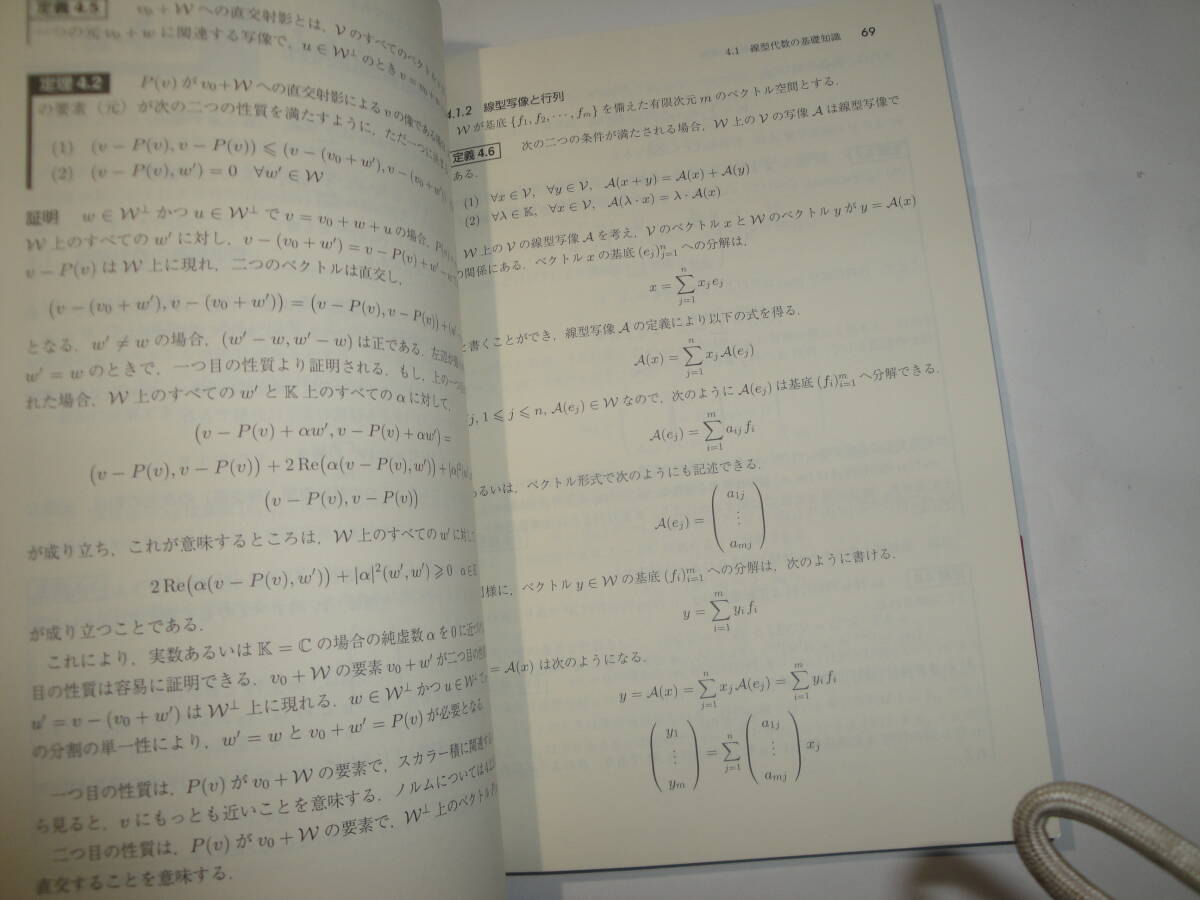 定義4.5 v₀+𝒲への直交射影とは,𝒱のすべてのベクト
一つの元v₀+wに関連する写像で,u∈𝒲⊥のときv=v₀+w+
定理4.2 P(v)がv₀+𝒲への直交射影によるvの像である
の要素(元)が次の二つの性質を満たすように,ただ一つに
(1) (v−P(v),v−P(v))⩽(v−(v₀+w′),v−(v₀+w′))
(2) (v−P(v),w′)=0 ∀w′∈𝒲
証明 w∈𝒲⊥かつu∈𝒲⊥でv=v₀+w+uの場合,
𝒲上のすべてのw′に対し,v−(v₀+w′)=v−P(v)+w′
v−P(v)は𝒲上に現れ,二つのベクトルは直交し,
(v−(v₀+w′),v−(v₀+w′))=(v−P(v),v−P(v))+
となる.w′≠wの場合,(w′−w,w′−w)は正である.左辺が
w′=wのときで,一つ目の性質より証明される.もし,上の一つ
れた場合,𝒲上のすべてのw′と𝕂上のすべてのαに対して,
(v−P(v)+αw′,v−P(v)+αw′)=
(v−P(v),v−P(v))+2Re(α(v−P(v),w′))+|α|²
(v−P(v),v−P(v))
が成り立ち,これが意味するところは,𝒲上のすべてのw′に対し
2Re(α(v−P(v),w′))+|α|²(w′,w′)⩾0 α∈
が成り立つことである.
これにより,実数あるいは𝕂=ℂの場合の純虚数αを0に近づ
目の性質は容易に証明できる.v₀+𝒲の要素v₀+w′が二つ目の
u′=v−(v₀+w′)は𝒲⊥上に現れる.w∈𝒲⊥かつu∈𝒲⊥
の分割の単一性により,w′=wとv₀+w′=P(v)が必要となる
一つ目の性質は,P(v)がv₀+𝒲の要素で,スカラー積に関連す
ら見ると,vにもっとも近いことを意味する.ノルムについては4.2.
二つ目の性質は,P(v)がv₀+𝒲の要素で,𝒲⊥上のベクトル
直交することを意味する.
4.1 線型代数の基礎知識 69
4.1.2 線型写像と行列
𝒲が基底{f₁,f₂,⋯,fₘ}を備えた有限次元mのベクトル空間とする.
定義4.6 次の二つの条件が満たされる場合,𝒲上の𝒱の写像𝒜は線型写像で
ある.
(1) ∀x∈𝒱, ∀y∈𝒱, 𝒜(x+y)=𝒜(x)+𝒜(y)
(2) ∀λ∈𝕂, ∀x∈𝒱, 𝒜(λ·x)=λ·𝒜(x)
𝒲上の𝒱の線型写像𝒜を考え,𝒱のベクトルxと𝒲のベクトルyがy=𝒜(x)
の関係にある.ベクトルxの基底(eⱼ)ⁿⱼ₌₁への分解は,
x=∑ⁿⱼ₌₁ xⱼeⱼ
と書くことができ,線型写像𝒜の定義により以下の式を得る.
𝒜(x)=∑ⁿⱼ₌₁ xⱼ𝒜(eⱼ)
j,1⩽j⩽n,𝒜(eⱼ)∈𝒲なので,次のように𝒜(eⱼ)は基底(fᵢ)ᵐᵢ₌₁へ分解できる.
𝒜(eⱼ)=∑ᵐᵢ₌₁ aᵢⱼfᵢ
あるいは,ベクトル形式で次のようにも記述できる.
a₁ⱼ
𝒜(eⱼ)=( ⋮ )
aₘⱼ
同様に,ベクトルy∈𝒲の基底(fᵢ)ᵐᵢ₌₁への分解は,次のように書ける.
y=∑ᵐᵢ₌₁ yᵢfᵢ
=𝒜(x)は次のようになる.
y=𝒜(x)=∑ⁿⱼ₌₁ xⱼ𝒜(eⱼ)=∑ᵐᵢ₌₁ yᵢfᵢ
y₁ a₁ⱼ
( ⋮ )=∑ⁿⱼ₌₁( ⋮ )xⱼ
yₘ aₘⱼ